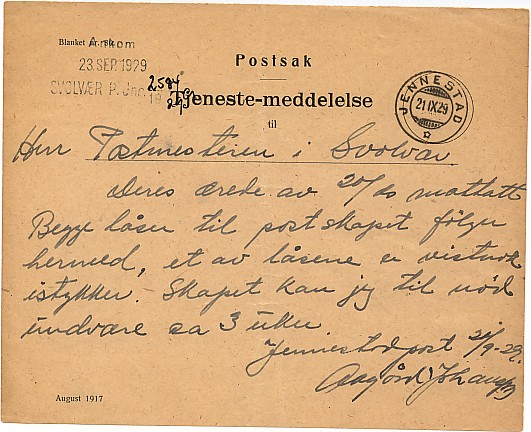 Blanket nr. 8b.
Ankom
23.SEP.1929
SVOLVÆR P. Jnr. 2584
19 29
Postsak
Tjeneste-meddelelse
til
JENNESTAD
21.IX.29
Herr Postmesteren i Svolvær
Deres ærede av 20/ds mottatt
Begge låser til postskapet følger
hermed, et av låsene er vistnok
istykker. Skapet kan jeg til nød
undvære ca 3 uker.
Jennestad post 21/9-29.
Aagård Johansen
August 1917